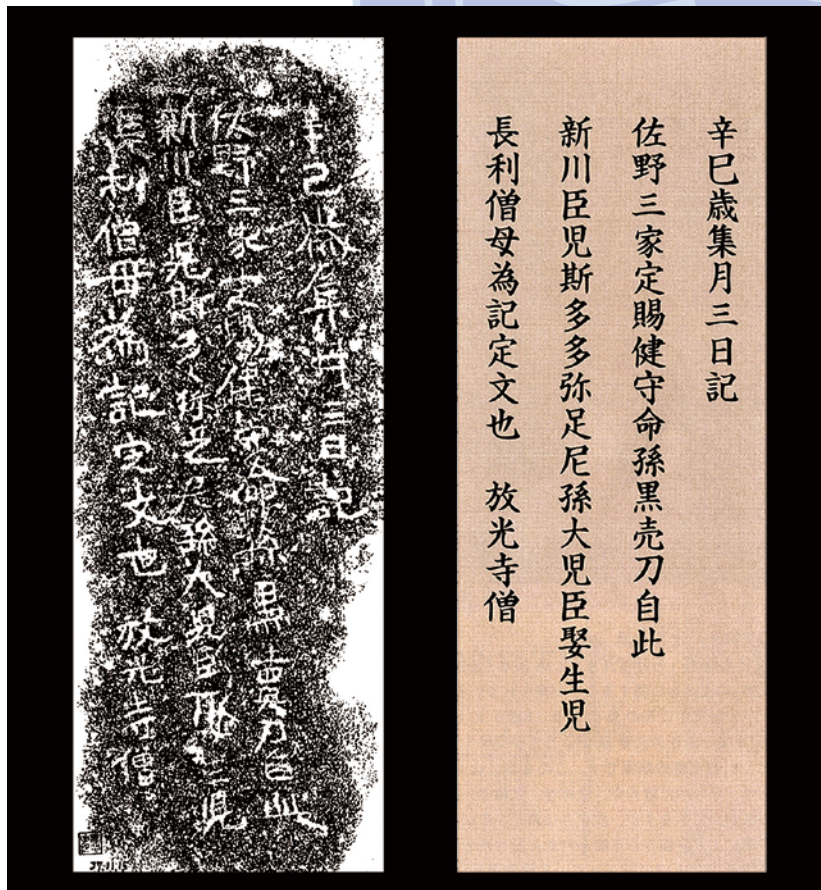 辛巳歳集月三日記
佐野三家定賜健守命孫黒売刀自此
新川臣児斯多多弥足尼孫大児臣娶生児
長利僧母為記定文也　放光寺僧
辛己歳集月三日記
佐野三家定賜健守命孫黒売刀自此
新川臣児斯多々弥足尼孫大児臣娶生児
長利僧母為記定文也　放光寺僧